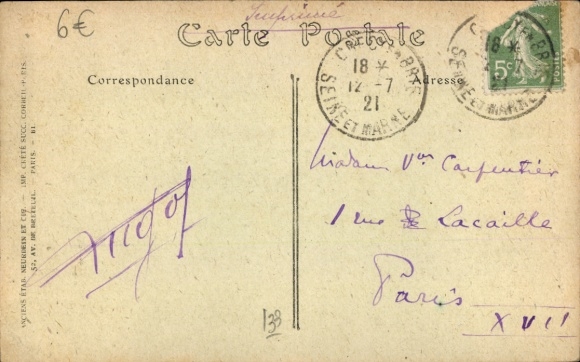 6€
Imprimé
Carte Postale
Correspondance
Adresse
18 *
12-7
21
SEINE ET MARNE
5c
18 *
7
21
SEINE ET MARNE
POSTES
Madame Vve Carpentier
1 rue Lacaille
Paris
XVII
138
ANCIENS ÉTAB. NEURDEIN ET CIE. — IMP. CRÉTÉ SUCC. CORBEIL-PARIS.
52, AV. DE BRETEUIL. PARIS. — R1